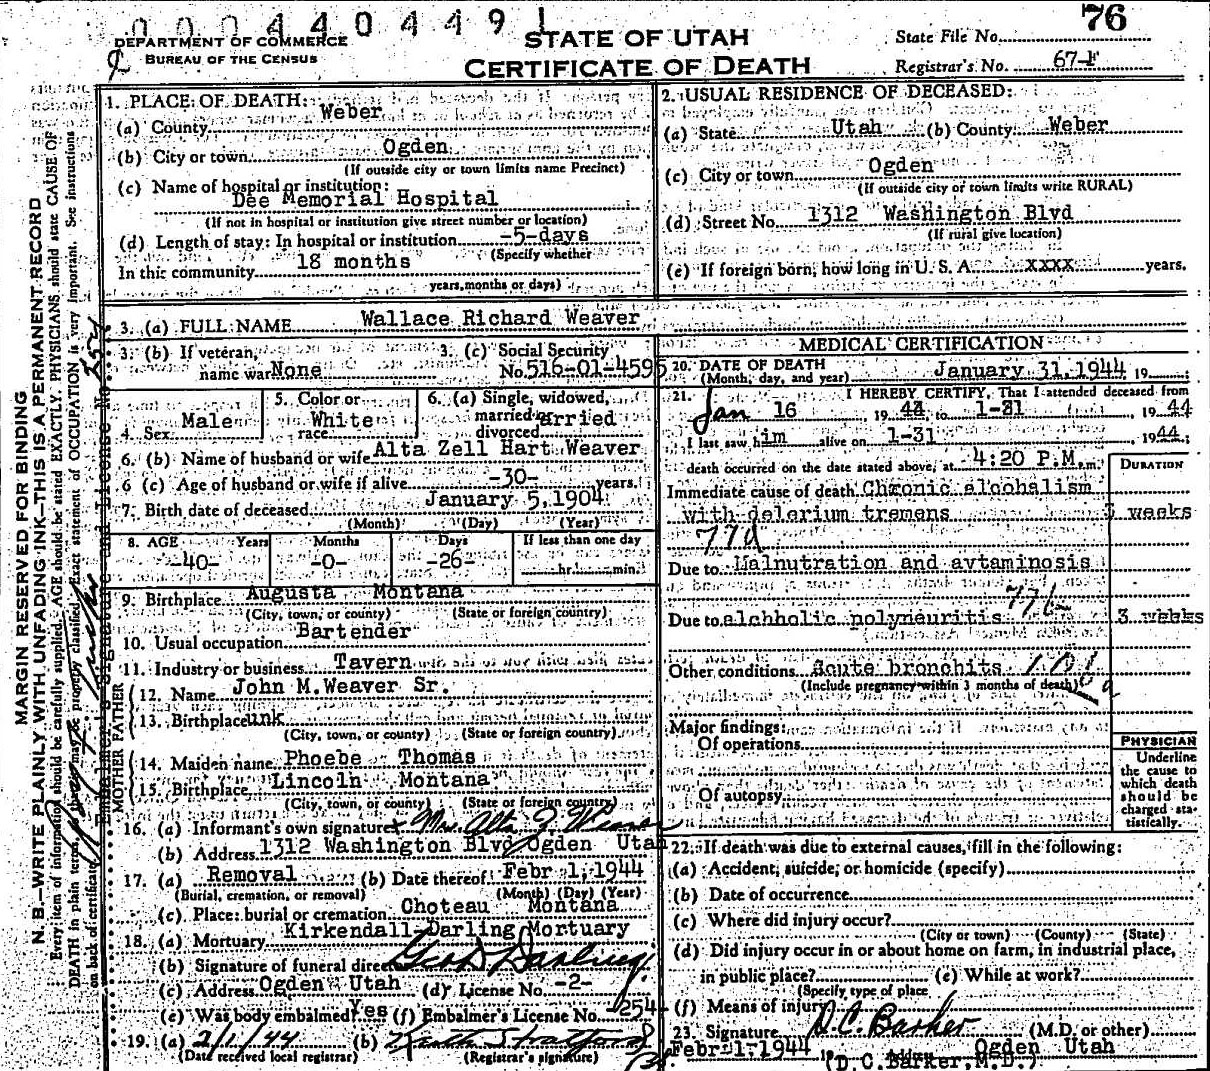 000440449 1
76
DEPARTMENT OF COMMERCE
BUREAU OF THE CENSUS
STATE OF UTAH
CERTIFICATE OF DEATH
State File No.
Registrar's No. 67-F
MARGIN RESERVED FOR BINDING
N. B.—WRITE PLAINLY, WITH UNFADING INK—THIS IS A PERMANENT RECORD
Every item of information should be carefully supplied. AGE should be stated EXACTLY. PHYSICIANS should state CAUSE OF
DEATH in plain terms, so that it may be properly classified. Exact statement of OCCUPATION is very important. See instructions
on back of certificate.
Embalmer's Signature and License No. 254
1. PLACE OF DEATH:
(a) County Weber
(b) City or town Ogden
(If outside city or town limits name Precinct)
(c) Name of hospital or institution:
Dee Memorial Hospital
(If not in hospital or institution give street number or location)
(d) Length of stay: In hospital or institution -5-days
(Specify whether
In this community 18 months
years, months or days)
2. USUAL RESIDENCE OF DECEASED:
(a) State Utah (b) County Weber
(c) City or town Ogden
(If outside city or town limits write RURAL)
(d) Street No. 1312 Washington Blvd
(If rural give location)
(e) If foreign born, how long in U. S. A. xxxx years.
3. (a) FULL NAME Wallace Richard Weaver
3. (b) If veteran, name war None
3. (c) Social Security No. 516-01-4595
4. Sex Male
5. Color or race White
6. (a) Single, widowed, married, divorced Married
6. (b) Name of husband or wife Alta Zell Hart Weaver
6 (c) Age of husband or wife if alive -30- years.
7. Birth date of deceased January 5, 1904
(Month) (Day) (Year)
8. AGE Years Months Days If less than one day
-40- -0- -26- hr. min.
9. Birthplace Augusta Montana
(City, town, or county) (State or foreign country)
10. Usual occupation Bartender
11. Industry or business Tavern
FATHER
12. Name John M.Weaver Sr.
13. Birthplace unk
(City, town, or county) (State or foreign country)
MOTHER
14. Maiden name Phoebe Thomas
15. Birthplace Lincoln Montana
(City, town, or county) (State or foreign country)
16. (a) Informant's own signature x Mrs. Alta Z Weaver
(b) Address 1312 Washington Blvd Ogden Utah
17. (a) Removal (b) Date thereof Febr 1, 1944
(Burial, cremation, or removal) (Month) (Day) (Year)
(c) Place: burial or cremation Choteau Montana
18. (a) Mortuary Kirkendall-Darling Mortuary
(b) Signature of funeral director Geo D Darling
(c) Address Ogden Utah (d) License No. -2-
(e) Was body embalmed? Yes (f) Embalmer's License No. -254-
19. (a) 2/1/44 (b) Keith Stratford
(Date received local registrar) (Registrar's signature)
MEDICAL CERTIFICATION
20. DATE OF DEATH January 31, 1944 19
(Month, day, and year)
21. I HEREBY CERTIFY, That I attended deceased from
Jan 16 1944 to 1-31, 1944
I last saw him alive on 1-31, 1944;
death occurred on the date stated above, at 4:20 P.M. m.
DURATION
Immediate cause of death Chronic alcohalism
with delerium tremens 3 weeks
77a
Due to Malnutration and avtaminosis
77b
Due to alchholic polyneuritis 3 weeks
Other conditions Acute bronchits 106a
(Include pregnancy within 3 months of death)
Major findings:
Of operations
Of autopsy
PHYSICIAN
Underline
the cause to
which death
should be
charged sta-
tistically.
22. If death was due to external causes, fill in the following:
(a) Accident, suicide, or homicide (specify)
(b) Date of occurrence
(c) Where did injury occur?
(City or town) (County) (State)
(d) Did injury occur in or about home on farm, in industrial place,
in public place? (e) While at work?
(Specify type of place
(f) Means of injury
23. Signature D.C. Barker (M.D. or other)
Febr-1-1944 Ogden Utah
(D.C.Barker, M.D.)